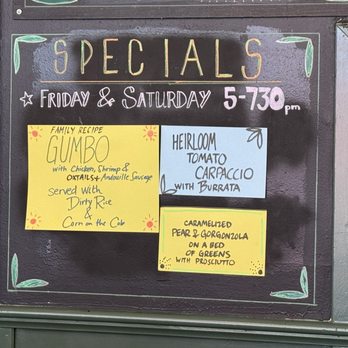 SPECIALS
☆ FRIDAY & SATURDAY 5-730pm
FAMILY RECIPE
GUMBO
with Chicken, Shrimp &
OXTAILS + Andouille Sausage
Served With
Dirty Rice
&
Corn on the Cob
HEIRLOOM
TOMATO
CARPACCIO
WITH BURRATA
CARAMELIZED
PEAR & GORGONZOLA
ON A BED
OF GREENS
WITH PROSCIUTTO